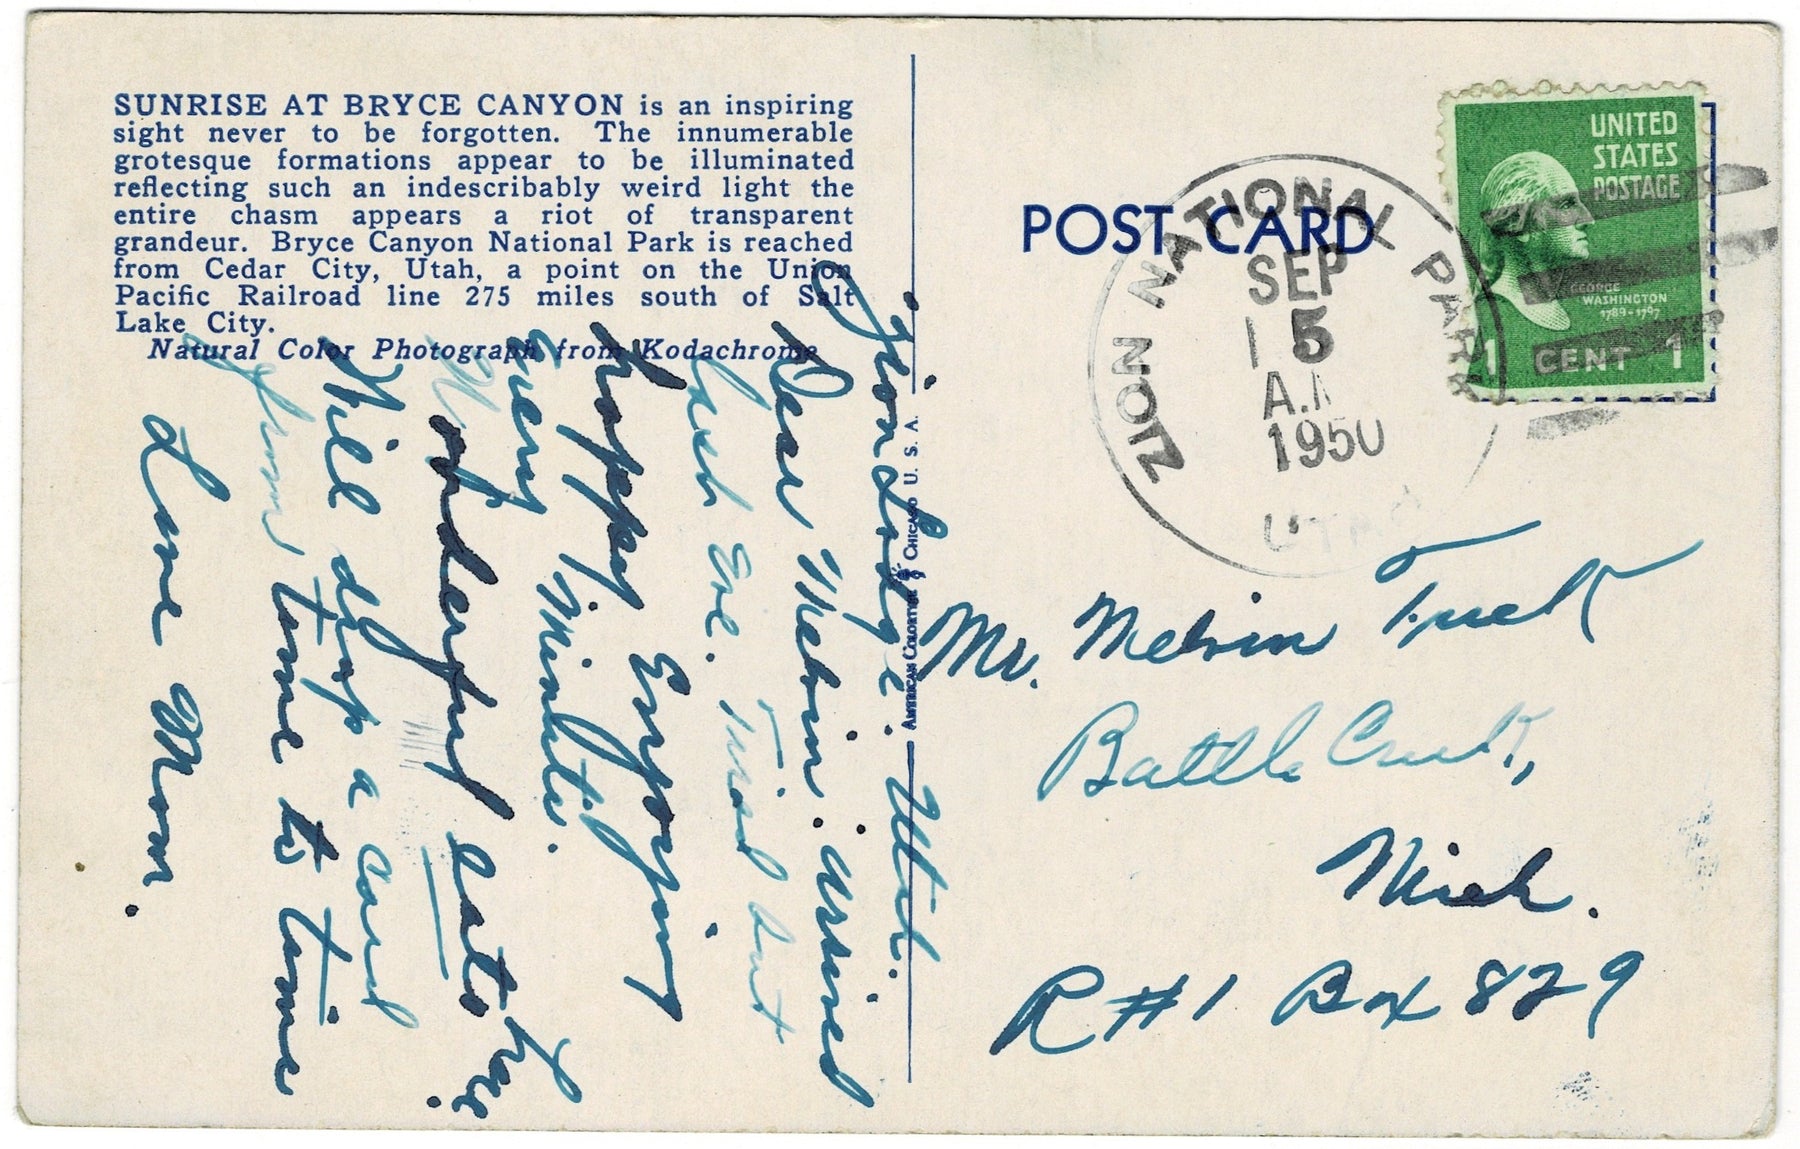 SUNRISE AT BRYCE CANYON is an inspiring
sight never to be forgotten. The innumerable
grotesque formations appear to be illuminated
reflecting such an indescribably weird light the
entire chasm appears a riot of transparent
grandeur. Bryce Canyon National Park is reached
from Cedar City, Utah, a point on the Union
Pacific Railroad line 275 miles south of Salt
Lake City.
Natural Color Photograph from Kodachrome
Zion Lodge. Utah.
Dear Melvin: Arrived
last Eve. Tired but
happy Enjoying
Every Minute.
Wonderful eats here.
Will drop a card
from time to time
Love Mom.
AMERICAN COLORTYPE CHICAGO U. S. A.
POST CARD
ZION NATIONAL PARK
SEP
5
A.M
1950
UTAH
UNITED
STATES
POSTAGE
GEORGE
WASHINGTON
1789-1797
1 CENT 1
Mr. Melvin Tuck
Battle Creek,
Mich.
R#1 Box 829